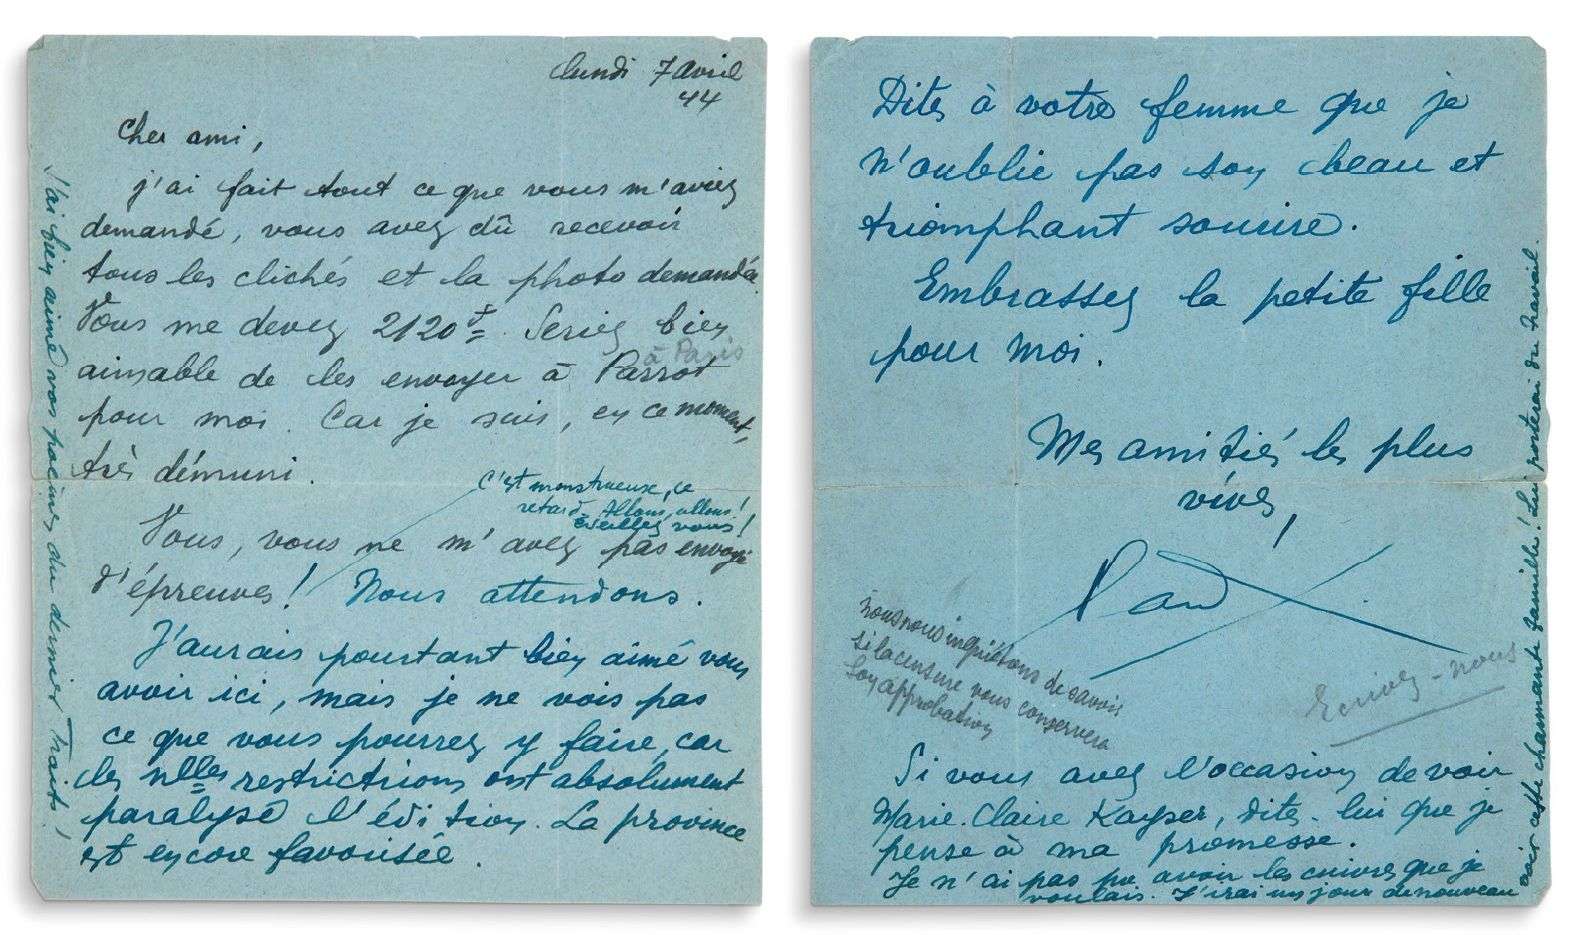 lundi 7 avril
44
Cher ami,
j'ai fait tout ce que vous m'aviez
demandé, vous avez dû recevoir
tous les clichés et la photo demandée.
Vous me devez 2120 f. Seriez bien
aimable de les envoyer à Parrot
à Paris
pour moi. Car je suis, en ce moment,
très démuni.
C'est monstrueuse, ce
retard. Allons, allons!
éveillez vous!
Vous, vous ne m'avez pas envoyé
d'épreuves! Nous attendons.
J'aurais pourtant bien aimé vous
avoir ici, mais je ne vois pas
ce que vous pourrez y faire, car
les nlles restrictions ont absolument
paralysé l'édition. La province
est encore favorisée.
J'ai bien aimé vos poèmes du dernier Traits!
Dites à votre femme que je
n'oublie pas son beau et
triomphant sourire.
Embrassez la petite fille
pour moi.
Mes amitiés les plus
vives,
Paul
nous nous inquiétons de savoir
si la censure vous conservera
son approbation
Ecrivez-nous
Si vous avez l'occasion de voir
Marie-Claire Kayser, dites-lui que je
pense à ma promesse.
Je n'ai pas pu avoir les cuivres que je
voulais. J'irai un jour de nouveau
voir cette charmante famille! Lui porterai du travail.